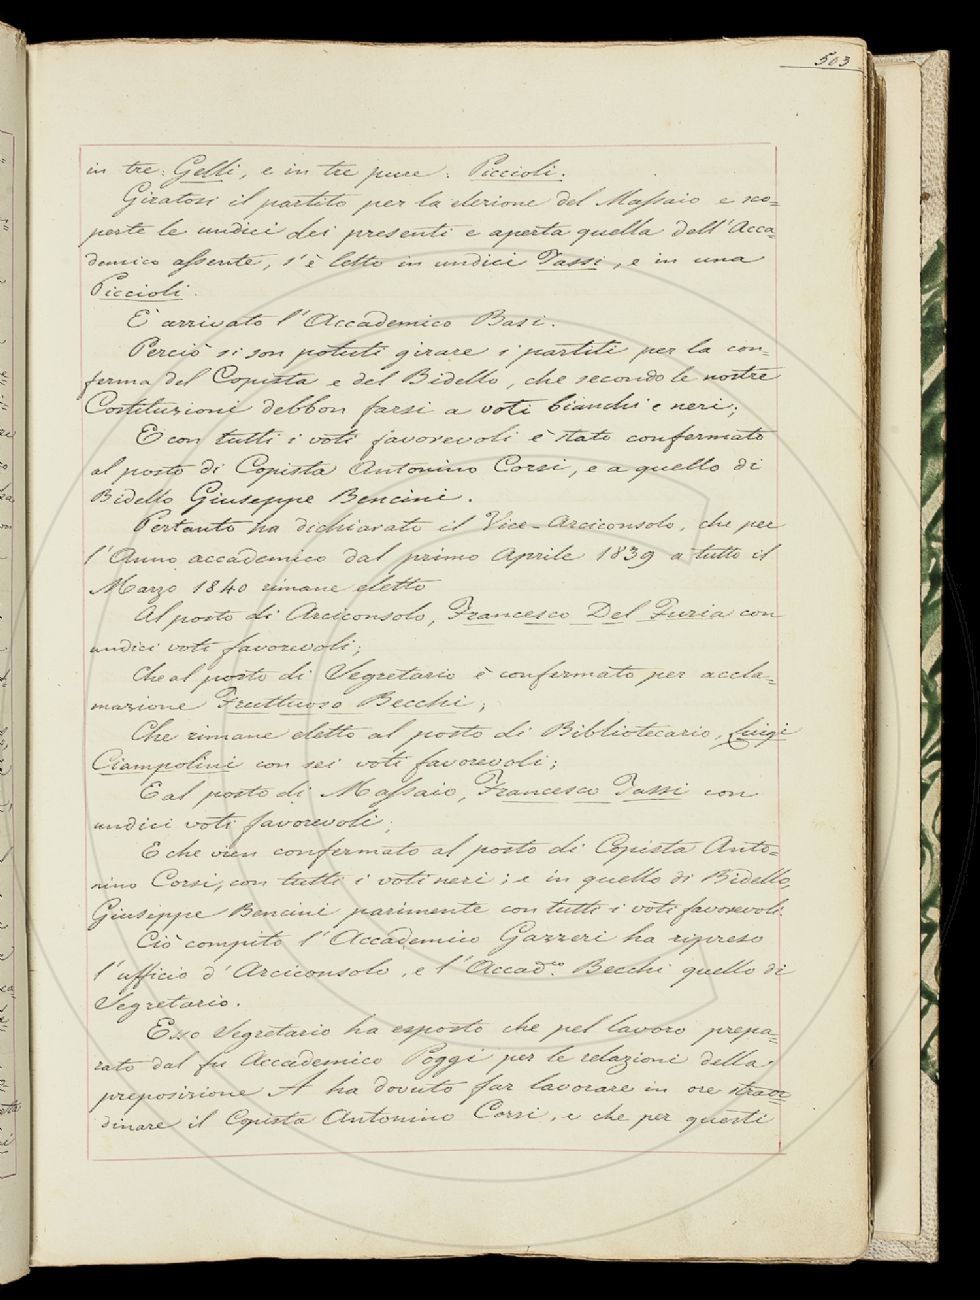 503
in tre: Gelli, e in tre pure: Piccioli.
Giratosi il partito per la elezione del Massaio e sco=
perte le undici dei presenti e aperta quella dell'Acca=
demico assente, s'è letto in undici Tassi, e in una
Piccioli.
E' arrivato l'Accademico Basi.
Perciò si son potuti girare i partiti per la con=
ferma del Copista e del Bidello, che secondo le nostre
Costituzioni debbon farsi a voti bianchi e neri;
E con tutti i voti favorevoli è stato confermato
al posto di Copista Antonino Corsi, e a quello di
Bidello Giuseppe Bencini.
Pertanto ha dichiarato il Vice-Arciconsolo, che per
l'Anno accademico dal primo Aprile 1839 a tutto il
Marzo 1840 rimane eletto
Al posto di Arciconsolo, Francesco Del Furia con
undici voti favorevoli;
Che al posto di Segretario è confermato per accla=
mazione Fruttuoso Becchi;
Che rimane eletto al posto di Bibliotecario, Luigi
Ciampolini con sei voti favorevoli;
E al posto di Massaio, Francesco Tassi con
undici voti favorevoli;
E che vien confermato al posto di Copista Anto=
nino Corsi, con tutti i voti neri; e in quello di Bidello,
Giuseppe Bencini parimente con tutti i voti favorevoli.
Ciò compito l'Accademico Gazzeri ha ripreso
l'uffizio d'Arciconsolo, e l'Accad.co Becchi quello di
Segretario.
Esso Segretario ha esposto che pel lavoro prepa=
rato dal fu Accademico Poggi per le relazioni della
preposizione A ha dovuto far lavorare in ore straor=
dinare il Copista Antonino Corsi, e che per questi